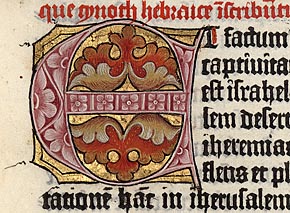 que gynoth hebraice īscribūt
Et factum
captiuita
est israhel
lem desert
iheremia
flens et pl
tationē hāc in iherusalem